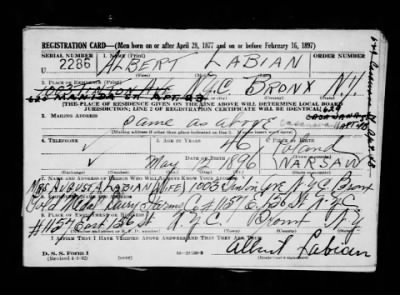 REGISTRATION CARD—(Men born on or after April 28, 1877 and on or before February 16, 1897)
SERIAL NUMBER
1. NAME (Print)
ORDER NUMBER
U 2286
ALBERT LABIAN
2. PLACE OF RESIDENCE (Print)
N.Y.C. BRONX N.Y.
[THE PLACE OF RESIDENCE GIVEN ON THE LINE ABOVE WILL DETERMINE LOCAL BOARD
JURISDICTION; LINE 2 OF REGISTRATION CERTIFICATE WILL BE IDENTICAL]
3. MAILING ADDRESS
Same as above
4. TELEPHONE
5. AGE IN YEARS
6. PLACE OF BIRTH
46
Poland
DATE OF BIRTH
May 12 1896
WARSAW
7. NAME AND ADDRESS OF PERSON WHO WILL ALWAYS KNOW YOUR ADDRESS
MRS AUGUSTA LABIAN (WIFE) 1003 N.Y.C. Bronx
8. EMPLOYER'S NAME AND ADDRESS
Dairy Farms Co #1157 E. 156 St N.Y.C
9. PLACE OF EMPLOYMENT OR BUSINESS
#1157 East 156 St. N.Y.C. Bronx N.Y
I AFFIRM THAT I HAVE VERIFIED ABOVE ANSWERS AND THAT THEY ARE TRUE.
D. S. S. Form 1
(Revised 4-1-42)
Albert Labian